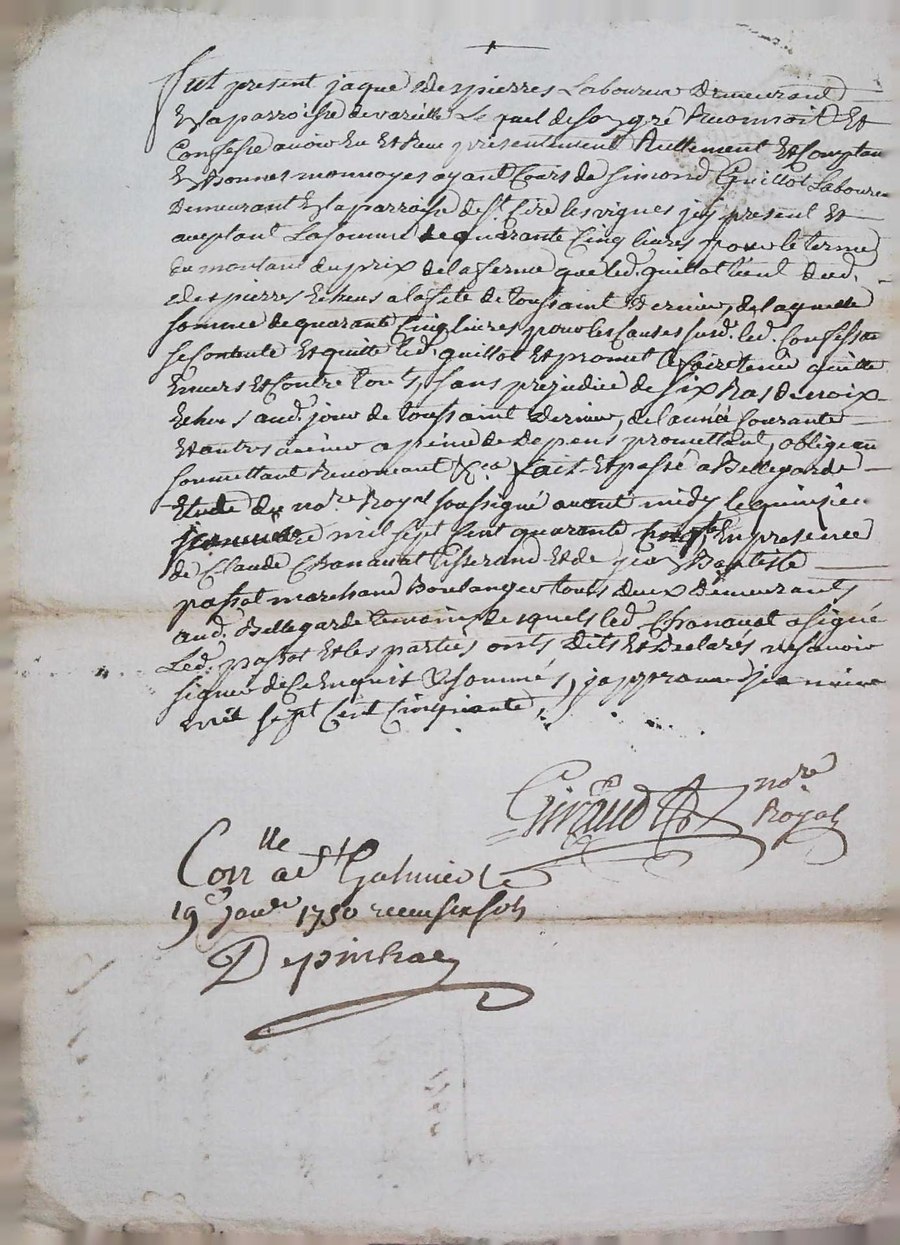 fut present jaque despierres Laboureur Demeurant
En la parroisse de vareille Le quel de son gré Reconnoit Et
Confesse avoir Eu Et Reçu présentement Reellement Et Comptan
En bonnes monnoyes ayant Cours de Simond Guillot Laboureur
Demeurant En la parroisse de St Cire les vignes jcy present Et
aceptant La somme de quarante Cinq livres pour le terme
En montant du prix de la ferme que led. guillot tient dud.
despierres Echeus a la fete de toussaint Dernier, de laquelle
somme de quarante Cinq livres pour les Causes susd. led. Confessan
se contente Et quitte led. guillot Et promet le faire tenir quitte
Envers Et Contre tous, sans prejudice de six Ras de noix
Echeus aud. jour de toussaint Dernier, de l'année Courante
Et autres a venir a peine de Depens promettant, obligean
soumettant Renonçant &ca fait Et passé a Bellegarde
Etude du nore Royal soussigné avant midy le quinzieme
mil sept Cent quarante En presence
de Claude Chanavat tisserand Et de jean Baptiste
passot marchand Boulanger touts deux Demeurants
aud. Bellegarde temoins desquels led. Chanavat a signé
Led. passot Et les parties onts Dits Et Declarés ne savoir
signer de Ce Enquis & sommés, japprouve janvier
mil sept Cent Cinquante
Giraud nore
Royal
Conlle a St Galmier Le
19e janer 1750 receu six sols
Depinhac